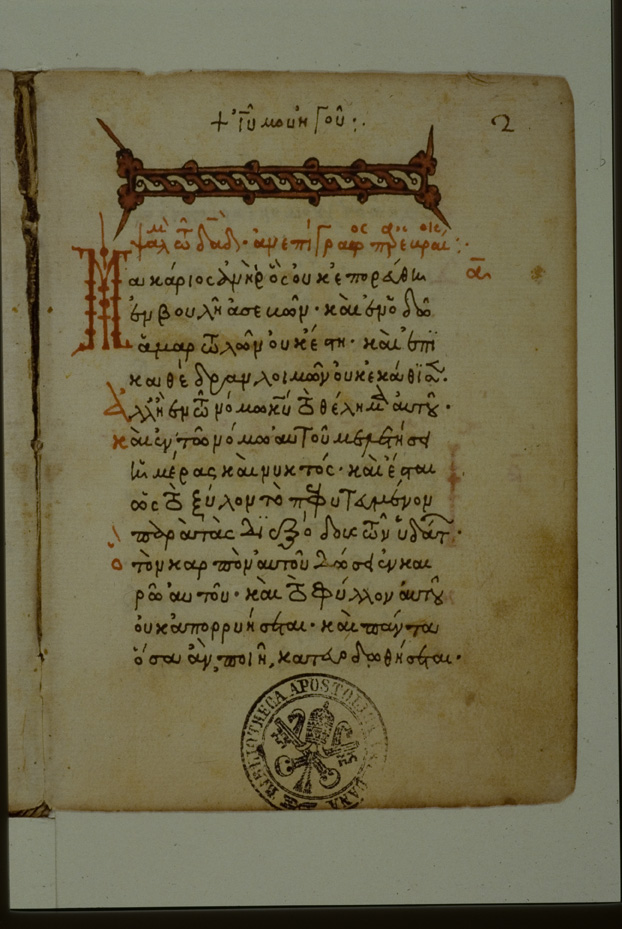 2
ψαλμὸς τῶ δαδ· ἀνεπίγραφος παρ ἑβραί:·
α
Μακάριος ἀνὴρ ὃς οὐκ ἐπορεύθη
ἐν βουλῆ ἀσεβῶν· καὶ ἐν ὁδῶ
ἁμαρτωλῶν οὐκ ἔστη· καὶ ἐπὶ
καθέδραν λοιμῶν οὐκ ἐκάθισεν·
Ἀλλ' ἢ ἐν τῶ νόμω κυ τὸ θέλημα αὐτοῦ·
καὶ ἐν τῶ νόμω αὐτοῦ μελετήσει
ἡμέρας καὶ νυκτός· καὶ ἔσται
ὡς τὸ ξύλον τὸ πεφυτευμένον
παρὰ τὰς διεξόδους τῶν ὑδάτων·
ὃ τὸν καρπὸν αὐτοῦ δώσει ἐν και
ρῶ αὐτοῦ· καὶ τὸ φύλλον αὐτοῦ
οὐκ ἀπορρυήσεται· καὶ πάντα
ὅσα ἂν ποιῆ, κατευοδωθήσεται·
BIBLIOTHECA APOSTOLICA VATICANA